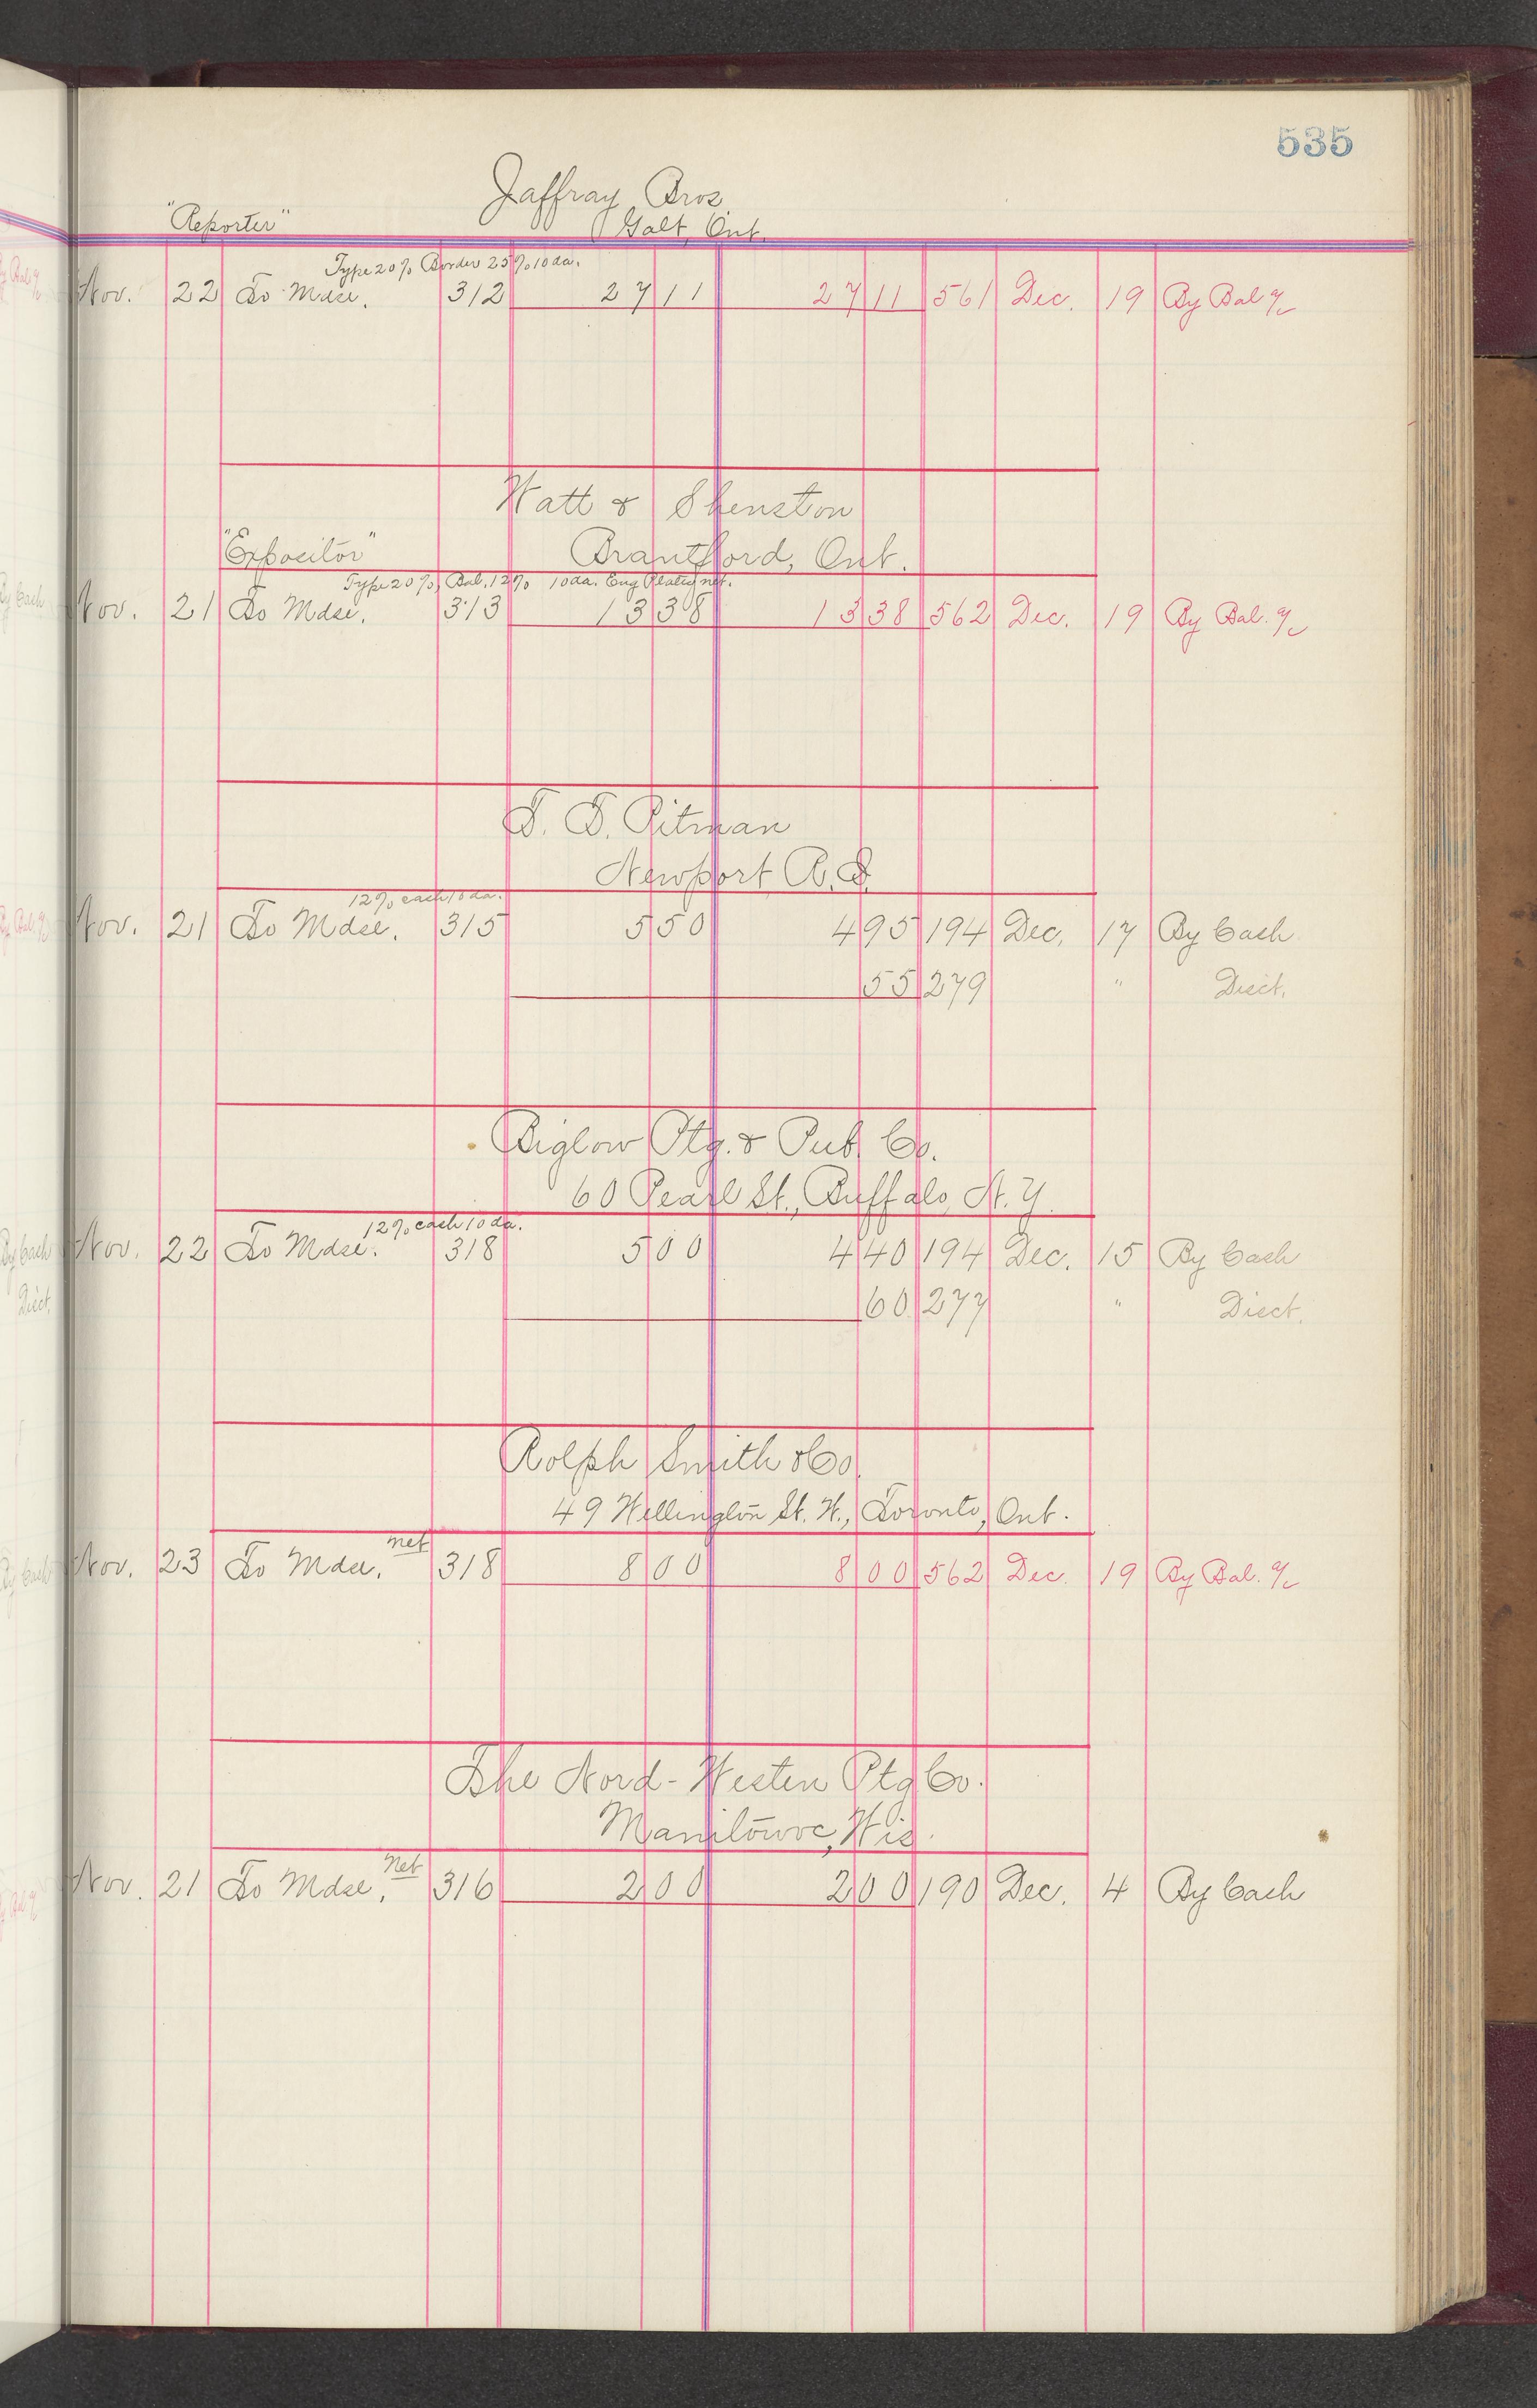 535
Jaffray Bros.
"Reporter" Galt, Ont.
Type 20% Border 25% 10 da.
Nov. 22 To Mdse. 312 27 11 27 11 561 Dec. 19 By Bal a/c
Watt & Shenston
"Expositor" Brantford, Ont.
Type 20%, Bal. 12% 10 da. Eng Plates net.
Nov. 21 To Mdse. 313 13 38 13 38 562 Dec. 19 By Bal. a/c
T. T. Pitman
Newport R.I.
12% cash 10 da.
Nov. 21 To Mdse. 315 5 50 4 95 194 Dec. 17 By Cash
55 279 " Disct.
Biglow Ptg. & Pub. Co.
60 Pearl St., Buffalo, N.Y.
12% cash 10 da.
Nov. 22 To Mdse. 318 5 00 4 40 194 Dec. 15 By Cash
60 277 " Disct.
Rolph Smith & Co.
49 Wellington St. W., Toronto, Ont.
net
Nov. 23 To Mdse. 318 8 00 8 00 562 Dec. 19 By Bal. a/c
The Nord-Westen Ptg Co.
Manitowoc, Wis.
net
Nov. 21 To Mdse. 316 2 00 2 00 190 Dec. 4 By Cash